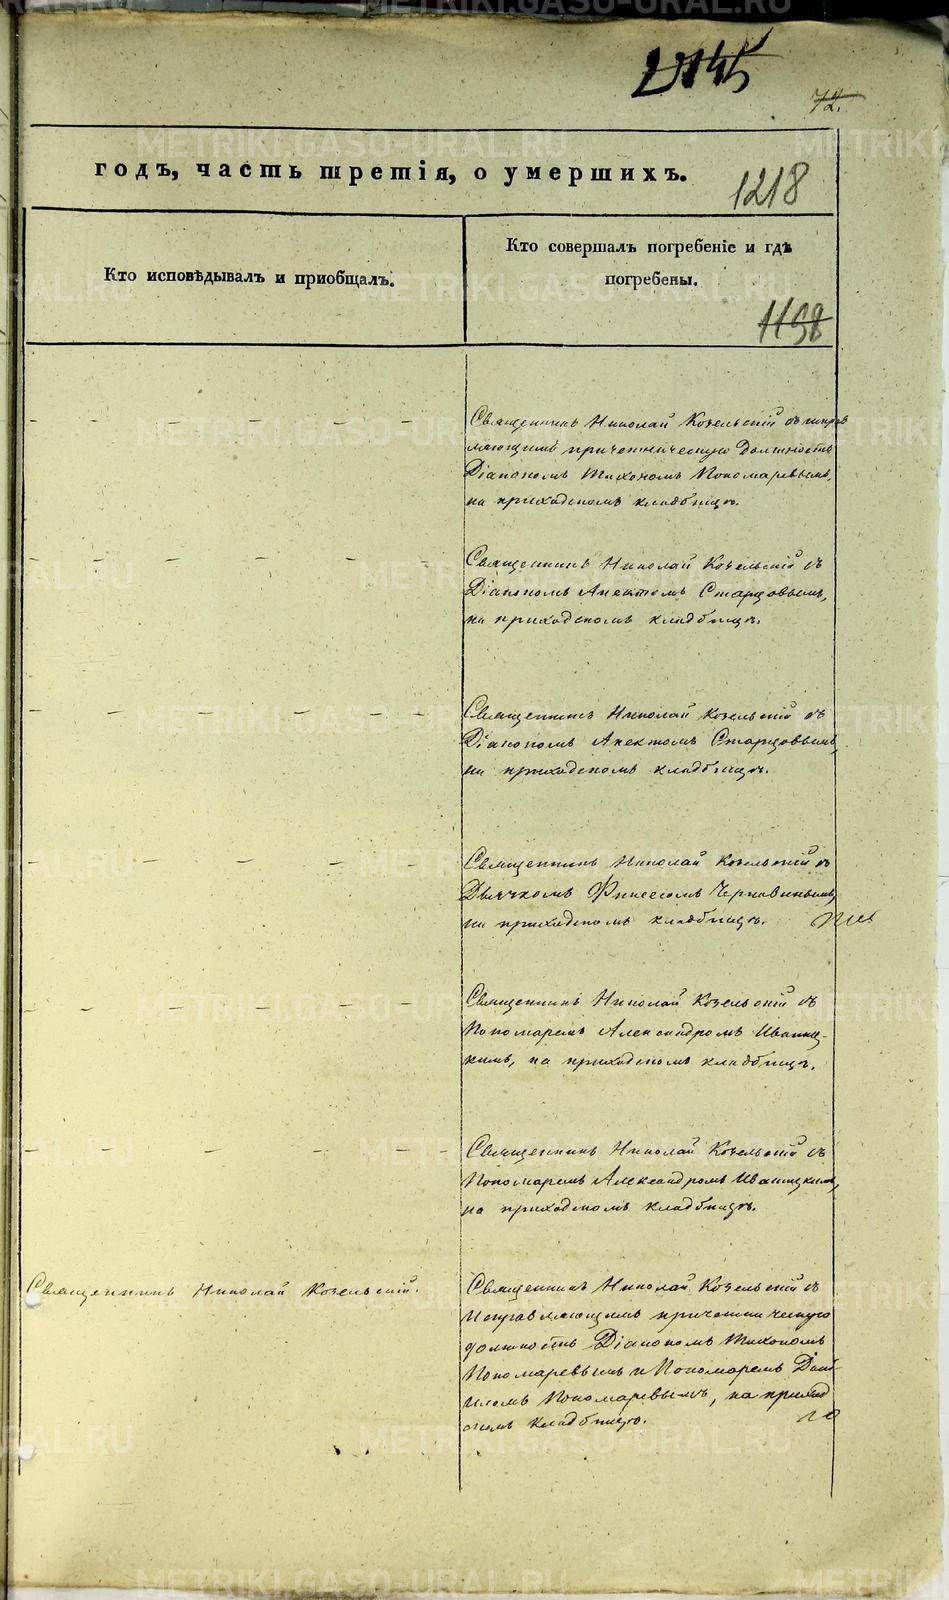 2145
72.
годъ, часть третія, о умершихъ.
1218
Кто исповѣдывалъ и пріобщалъ.
Кто совершалъ погребеніе и гдѣ
погребены.
1198
Священникъ Николай Козельскій съ исправ
ляющимъ причетническую должность
Діакономъ Тихономъ Пономаревымъ,
на приходскомъ кладбищѣ.
Священникъ Николай Козельскій съ
Діакономъ Старцовымъ,
на приходскомъ кладбищѣ.
Священникъ Николай Козельскій съ
Діакономъ Старцовымъ,
на приходскомъ кладбищѣ.
Священникъ Николай Козельскій съ
Дьячкомъ Чернавинымъ,
на приходскомъ кладбищѣ.
Священникъ Николай Козельскій съ
Пономаремъ Александромъ Иваниц-
кимъ, на приходскомъ кладбищѣ.
Священникъ Николай Козельскій съ
Пономаремъ Александромъ Иваницкимъ,
на приходскомъ кладбищѣ.
Священникъ Николай Козельскій.
Священникъ Николай Козельскій съ
исправляющимъ причетническую
должность Діакономъ Тихономъ
Пономаревымъ и Пономаремъ
Пономаревымъ, на приход
скомъ кладбищѣ.
METRIKI.GASO-URAL.RU